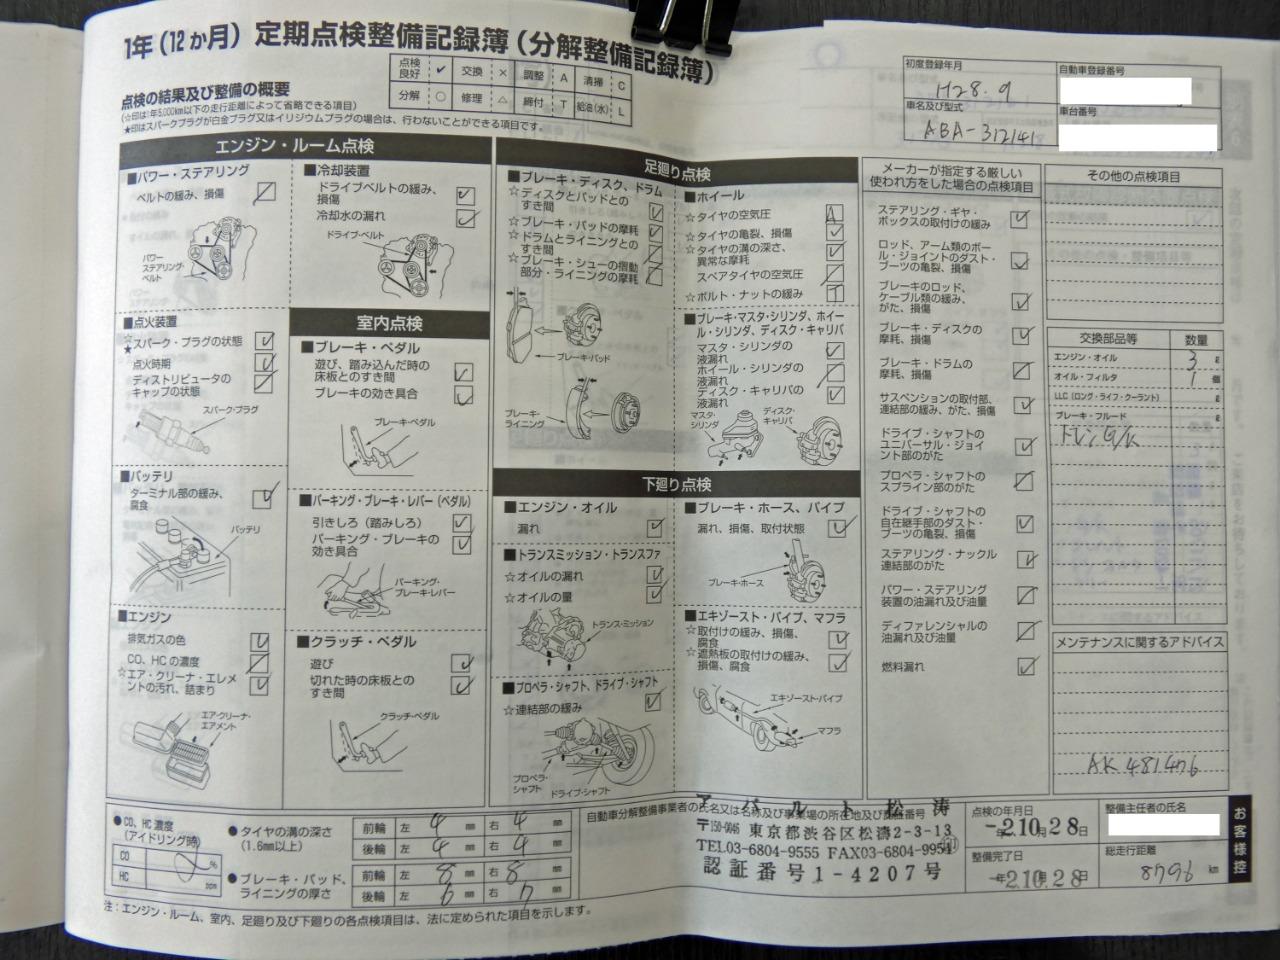 1年(12か月)定期点検整備記録簿(分解整備記録簿)
点検の結果及び整備の概要
(☆印は1年5,000km以下の走行距離によって省略できる項目)
★印はスパークプラグが白金プラグ又はイリジウムプラグの場合は、行わないことができる項目です。
点検良好 ✓ 交換 × 調整 A 清掃 C
分解 ○ 修理 △ 締付 T 給油(水) L
初度登録年月
H28.9
自動車登録番号
車名及び型式
ABA-312141
車台番号
エンジン・ルーム点検
■パワー・ステアリング
ベルトの緩み、損傷
パワーステアリング・ベルト
■冷却装置
ドライブベルトの緩み、損傷
冷却水の漏れ
ドライブ・ベルト
■点火装置
☆★スパーク・プラグの状態
点火時期
ディストリビュータのキャップの状態
スパーク・プラグ
■バッテリ
ターミナル部の緩み、腐食
バッテリ
■エンジン
排気ガスの色
CO、HCの濃度
☆エア・クリーナ・エレメントの汚れ、詰まり
エア・クリーナ・エアメント
室内点検
■ブレーキ・ペダル
遊び、踏み込んだ時の床板とのすき間
ブレーキの効き具合
ブレーキ・ペダル
■パーキング・ブレーキ・レバー(ペダル)
引きしろ(踏みしろ)
パーキング・ブレーキの効き具合
パーキング・ブレーキ・レバー
■クラッチ・ペダル
遊び
切れた時の床板とのすき間
クラッチ・ペダル
足廻り点検
■ブレーキ・ディスク、ドラム
☆ディスクとパッドとのすき間
☆ブレーキ・パッドの摩耗
☆ドラムとライニングとのすき間
☆ブレーキ・シューの摺動部分・ライニングの摩耗
ブレーキ・パッド
ブレーキ・ライニング
■ホイール
☆タイヤの空気圧 A
☆タイヤの亀裂、損傷
☆タイヤの溝の深さ、異常な摩耗
スペアタイヤの空気圧
☆ボルト・ナットの緩み T
■ブレーキ・マスタ・シリンダ、ホイール・シリンダ、ディスク・キャリパ
マスタ・シリンダの液漏れ
ホイール・シリンダの液漏れ
ディスク・キャリパの液漏れ
マスタ・シリンダ
ディスク・キャリパ
下廻り点検
■エンジン・オイル
漏れ
■トランスミッション・トランスファ
☆オイルの漏れ
☆オイルの量
トランス・ミッション
■プロペラ・シャフト、ドライブ・シャフト
☆連結部の緩み
プロペラ・シャフト
ドライブ・シャフト
■ブレーキ・ホース、パイプ
漏れ、損傷、取付状態
ブレーキ・ホース
■エキゾースト・パイプ、マフラ
☆取付けの緩み、損傷、腐食
☆遮熱板の取付けの緩み、損傷、腐食
エキゾースト・パイプ
マフラ
メーカーが指定する厳しい使われ方をした場合の点検項目
ステアリング・ギヤ・ボックスの取付けの緩み
ロッド、アーム類のボール・ジョイントのダスト・ブーツの亀裂、損傷
ブレーキのロッド、ケーブル類の緩み、がた、損傷
ブレーキ・ディスクの摩耗、損傷
ブレーキ・ドラムの摩耗、損傷
サスペンションの取付部、連結部の緩み、がた、損傷
ドライブ・シャフトのユニバーサル・ジョイント部のがた
プロペラ・シャフトのスプライン部のがた
ドライブ・シャフトの自在継手部のダスト・ブーツの亀裂、損傷
ステアリング・ナックル連結部のがた
パワー・ステアリング装置の油漏れ及び油量
ディファレンシャルの油漏れ及び油量
燃料漏れ
その他の点検項目
交換部品等 数量
エンジン・オイル 3 ℓ
オイル・フィルタ 1 個
LLC(ロング・ライフ・クーラント) ℓ
ブレーキ・フルード ℓ
ドレンG/K
メンテナンスに関するアドバイス
AK481476
●CO、HC濃度(アイドリング時)
CO %
HC ppm
●タイヤの溝の深さ(1.6mm以上)
前輪 左 4 mm 右 4 mm
後輪 左 4 mm 右 4 mm
●ブレーキ・パッド、ライニングの厚さ
前輪 左 8 mm 右 8 mm
後輪 左 6 mm 右 7 mm
自動車分解整備事業者の氏名又は名称及び事業場の所在地及び認証番号
アバルト松涛
〒150-0046 東京都渋谷区松濤2-3-13
TEL03-6804-9555 FAX03-6804-9954 印
認証番号1-4207号
点検の年月日
-2.10.28日
整備完了日
-2.10.28日
整備主任者の氏名
総走行距離
8796 km
お客様控
注:エンジン・ルーム、室内、足廻り及び下廻りの各点検項目は、法に定められた項目を示します。